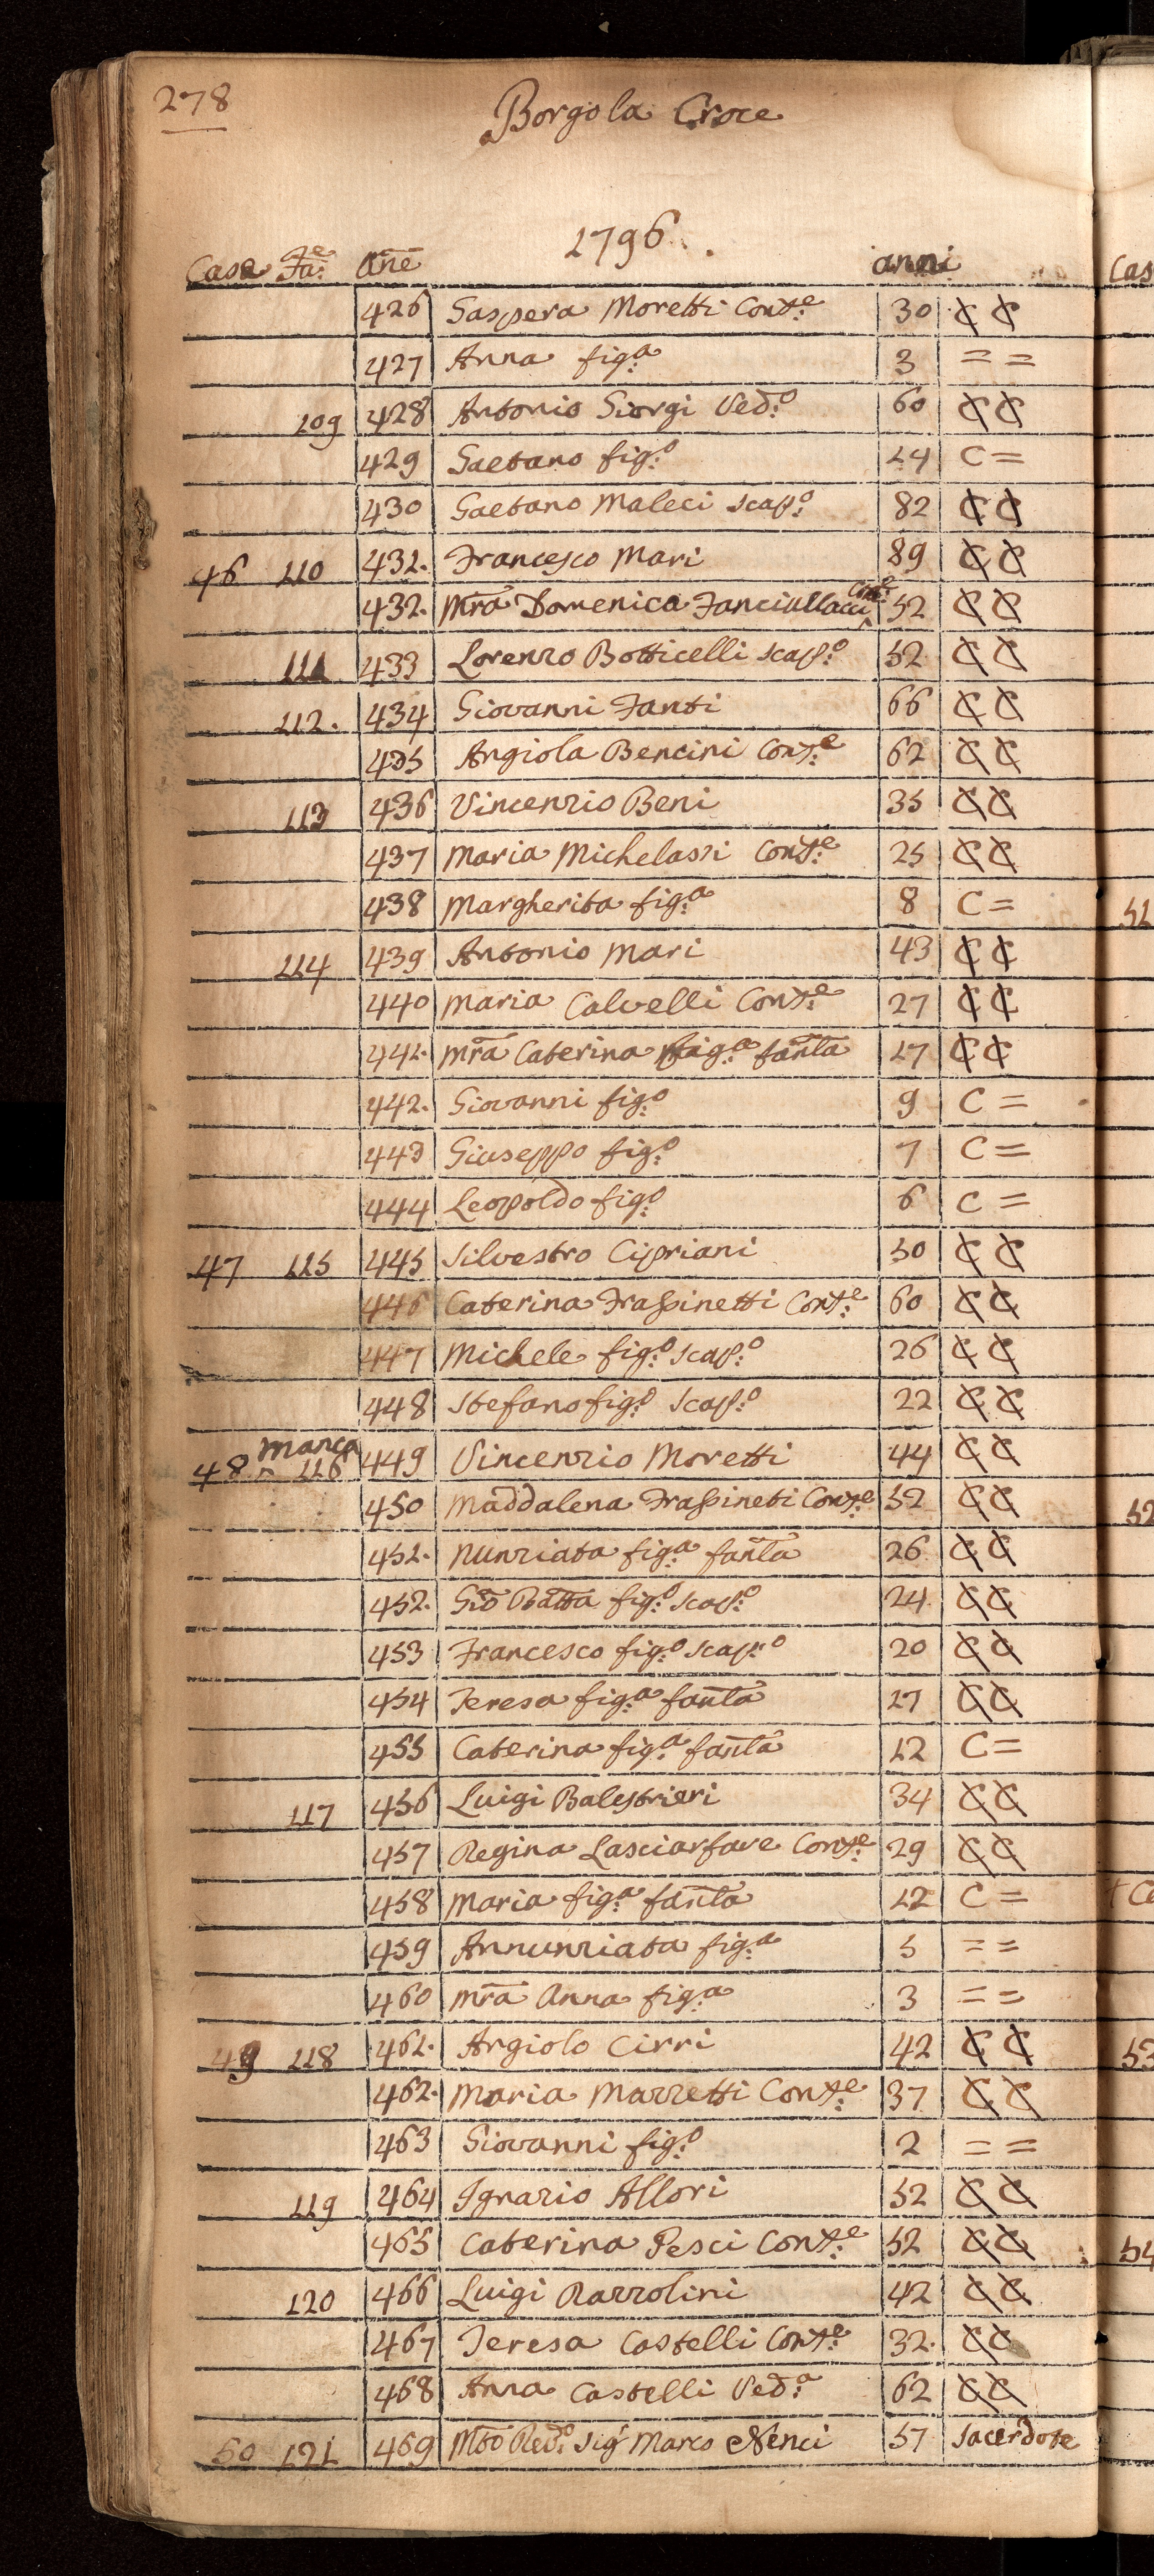 278
Borgo la Croce
1796.
Case Fa:e Añe anni
426 Gaspera Moretti Cons:e 30 C C
427 Anna fig:a 3 = =
109 428 Antonio Giorgi Ved:o 60 C C
429 Gaetano fig:o 14 C =
430 Gaetano Maleci scap:o 82 C C
46 110 431. Francesco Mari 89 C C
432. Mra Domenica Fanciullacci Con:e 52 C C
111 433 Lorenzo Botticelli scap:o 52 C C
112. 434 Giovanni Fanti 66 C C
435 Angiola Bencini Cons:e 62 C C
113 436 Vincenzio Beni 35 C C
437 Maria Michelassi Cons:e 25 C C
438 Margherita fig:a 8 C =
114 439 Antonio Mari 43 C C
440 Maria Calvelli Cons:e 27 C C
441. Mra Caterina fig:a fanla 17 C C
442. Giovanni fig:o 9 C =
443 Giuseppo fig:o 7 C =
444 Leopoldo fig:o 6 C =
47 115 445 Silvestro Cipriani 50 C C
446 Caterina Frassinetti Cons:e 60 C C
447 Michele fig:o scap:o 26 C C
448 Stefano fig:o scap:o 22 C C
Marca
48 ^ 116 449 Vincenzio Moretti 44 C C
450 Maddalena Frassineti Cons:e 52 C C
451. Nunziata fig:a fanla 26 C C
452. Gio Batta fig:o scap:o 24 C C
453 Francesco fig:o scap:o 20 C C
454 Teresa fig:a fanla 17 C C
455 Caterina fig:a fanla 12 C =
117 456 Luigi Balestrieri 34 C C
457 Regina Lasciarfare Cons:e 29 C C
458 Maria fig:a fanla 12 C =
459 Annunziata fig:a 5 = =
460 Mra Anna fig:a 3 = =
49 118 461. Angiolo Cirri 42 C C
462. Maria Mazzetti Cons:e 37 C C
463 Giovanni fig:o 2 = =
119 464 Ignazio Allori 52 C C
465 Caterina Pesci Cons:e 52 C C
120 466 Luigi Razzolini 42 C C
467 Teresa Castelli Cons:e 32. C C
468 Anna Castelli Ved:a 62 C C
50 121 469 Mto Red:o Sigr Marco Nenci 57 Sacerdote
Cas
51
52
53
54